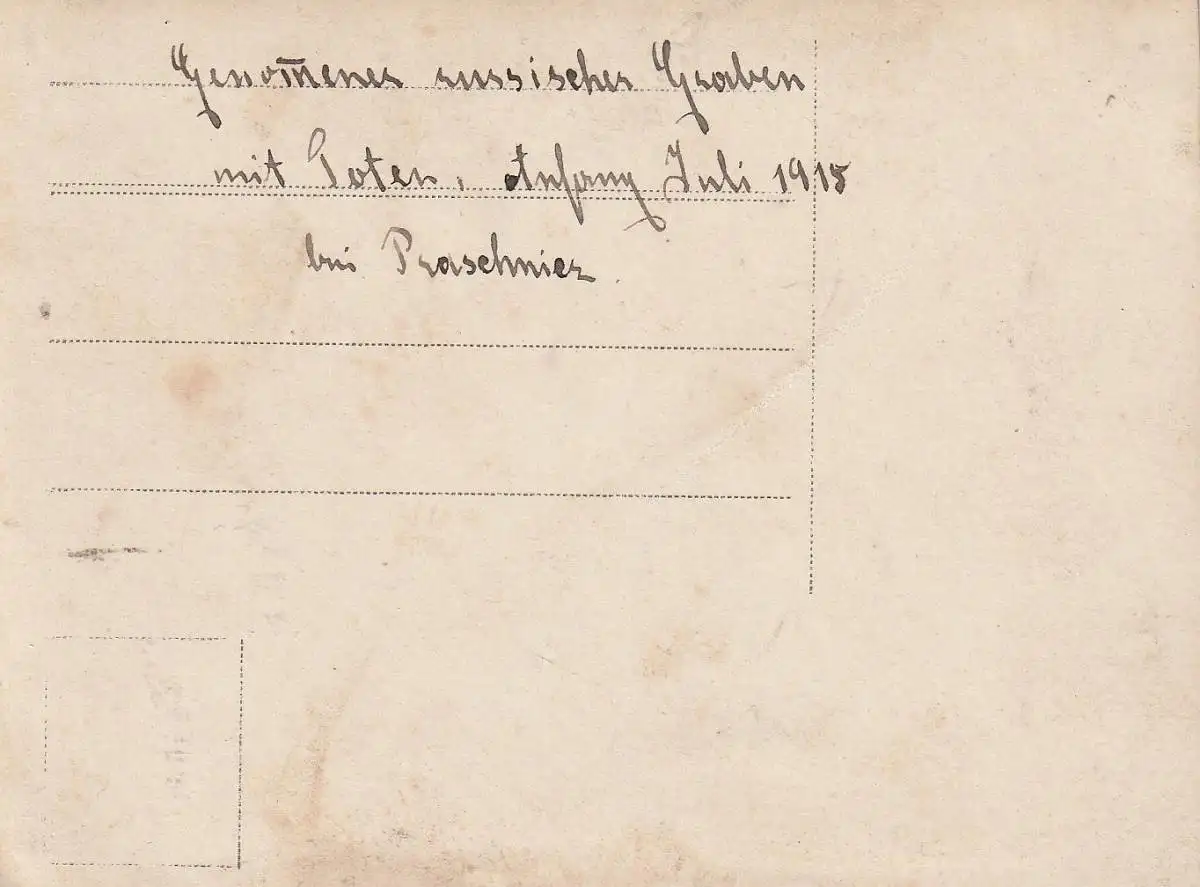 Genom̅ener russischer Graben
mit Toten, Anfang Juli 1915
bei Praschniez.